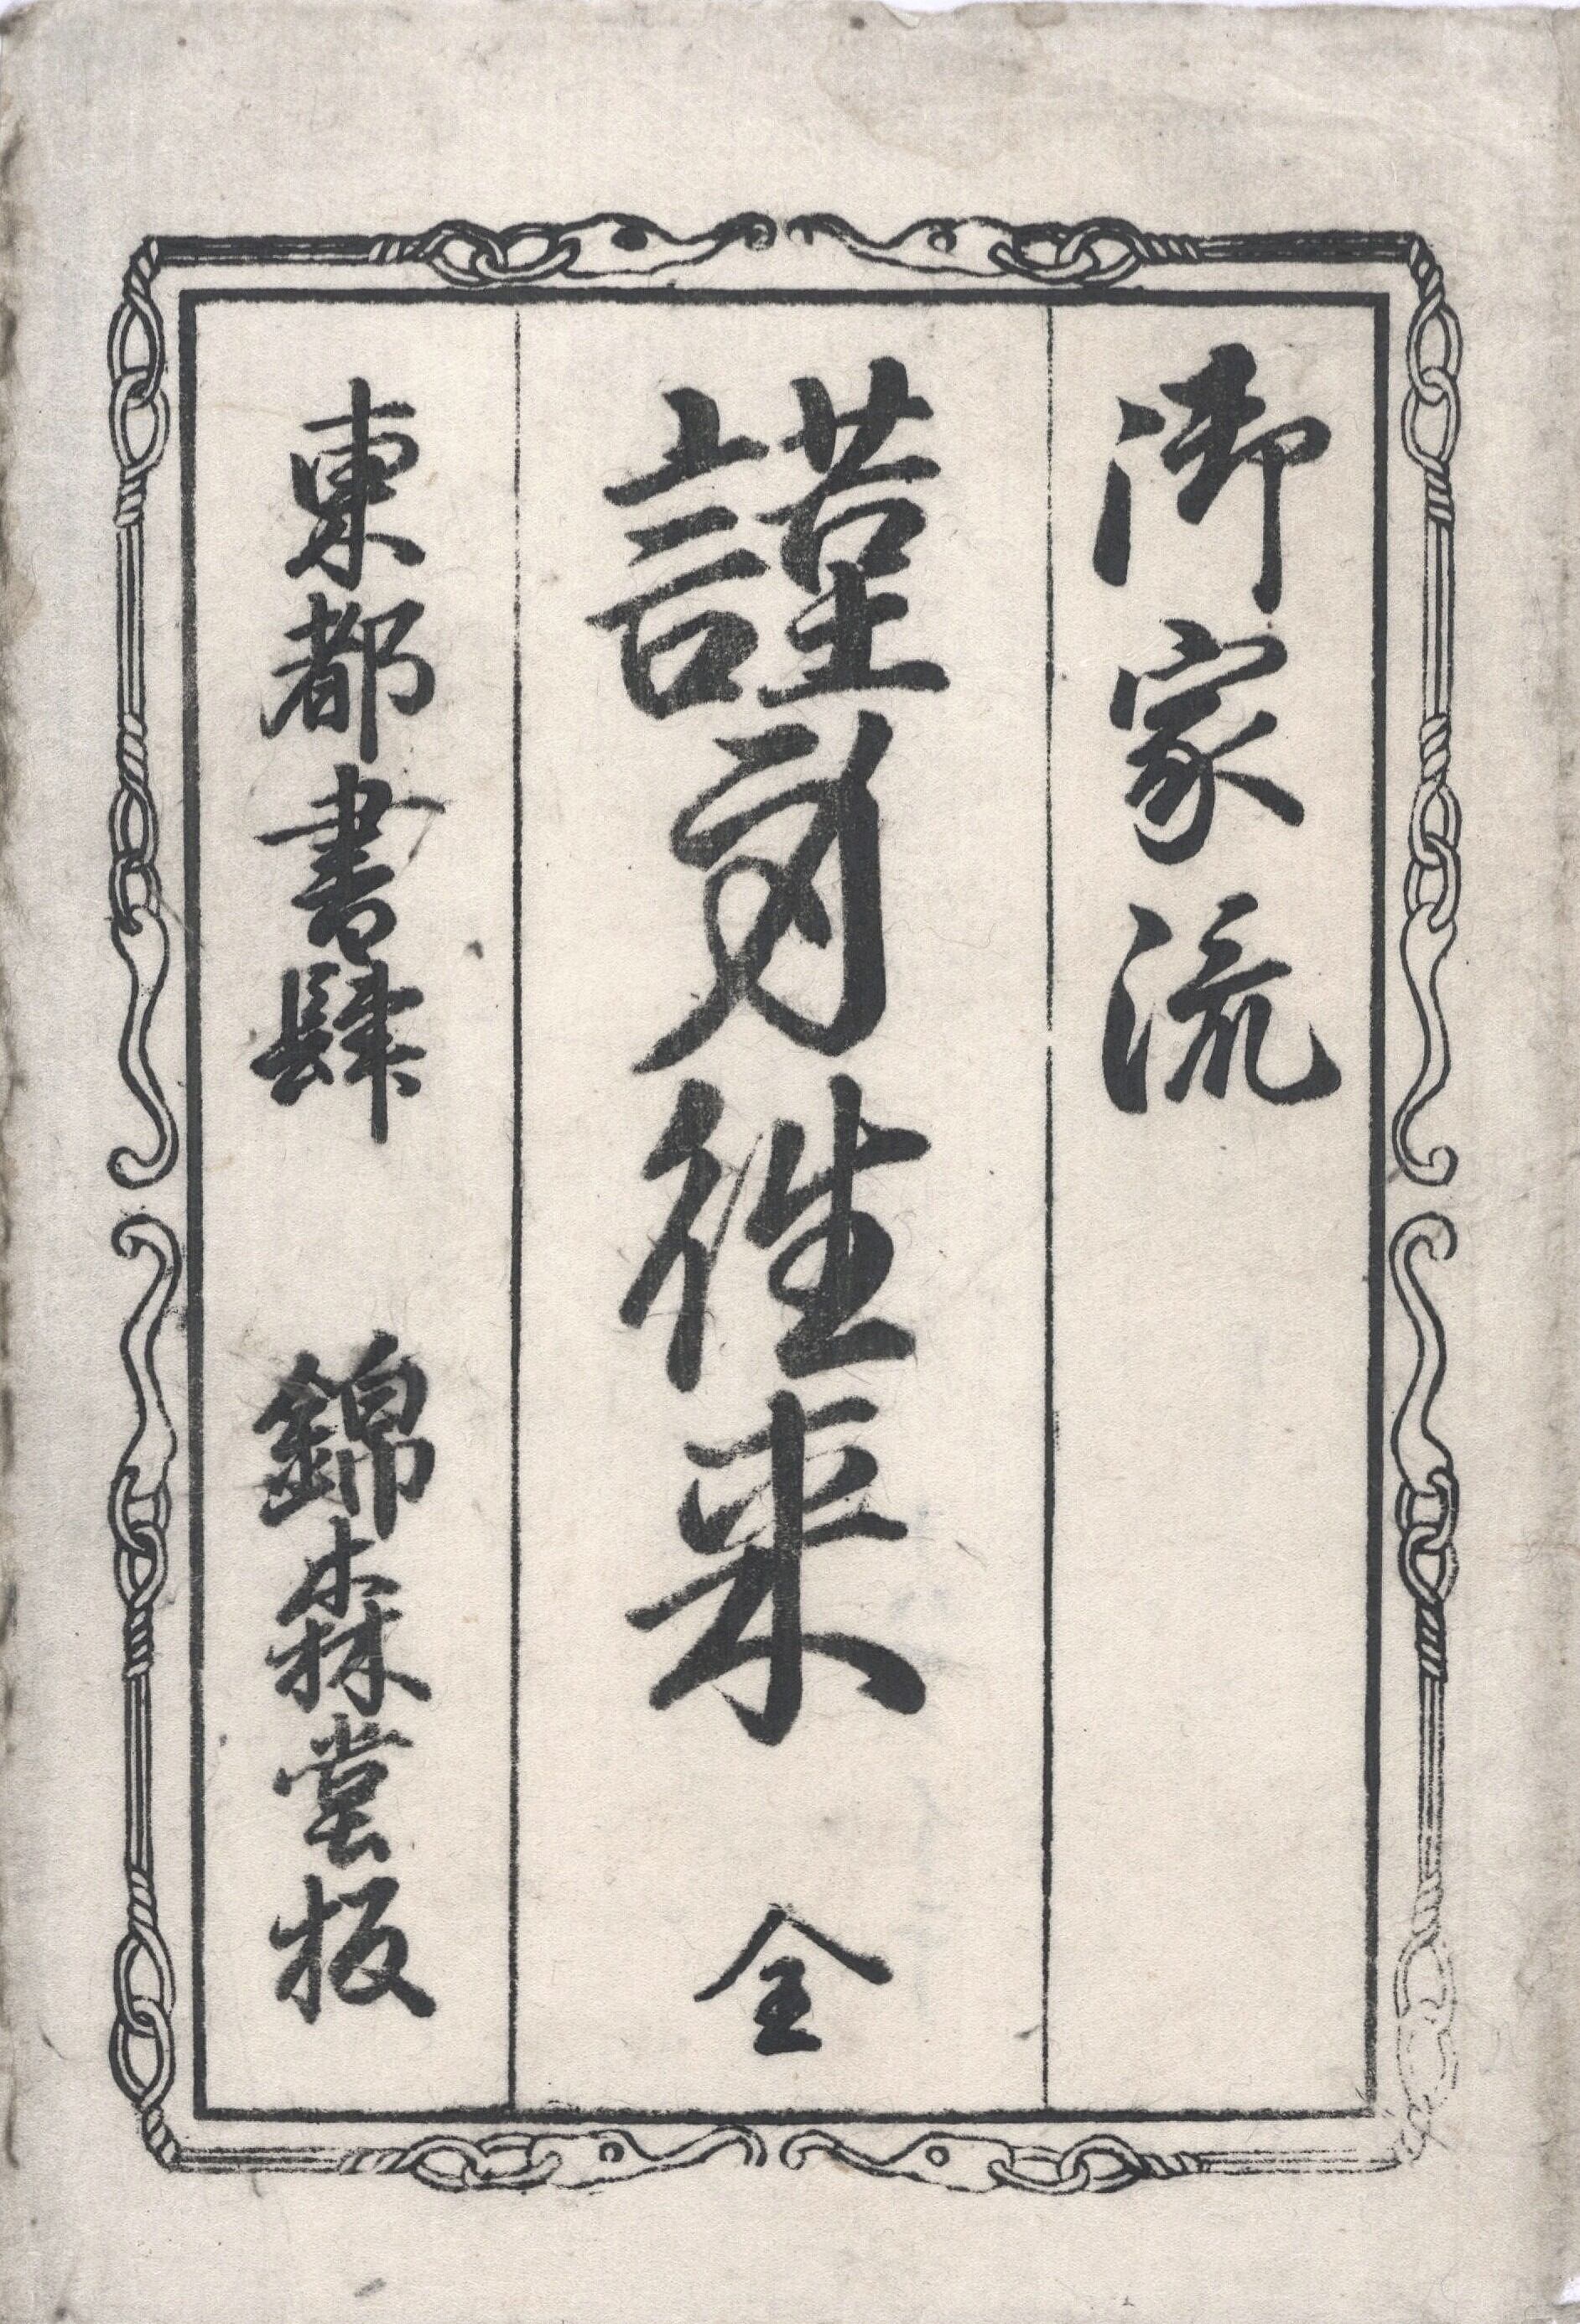 御家流
謹身往来 全
東都書肆 錦森堂板